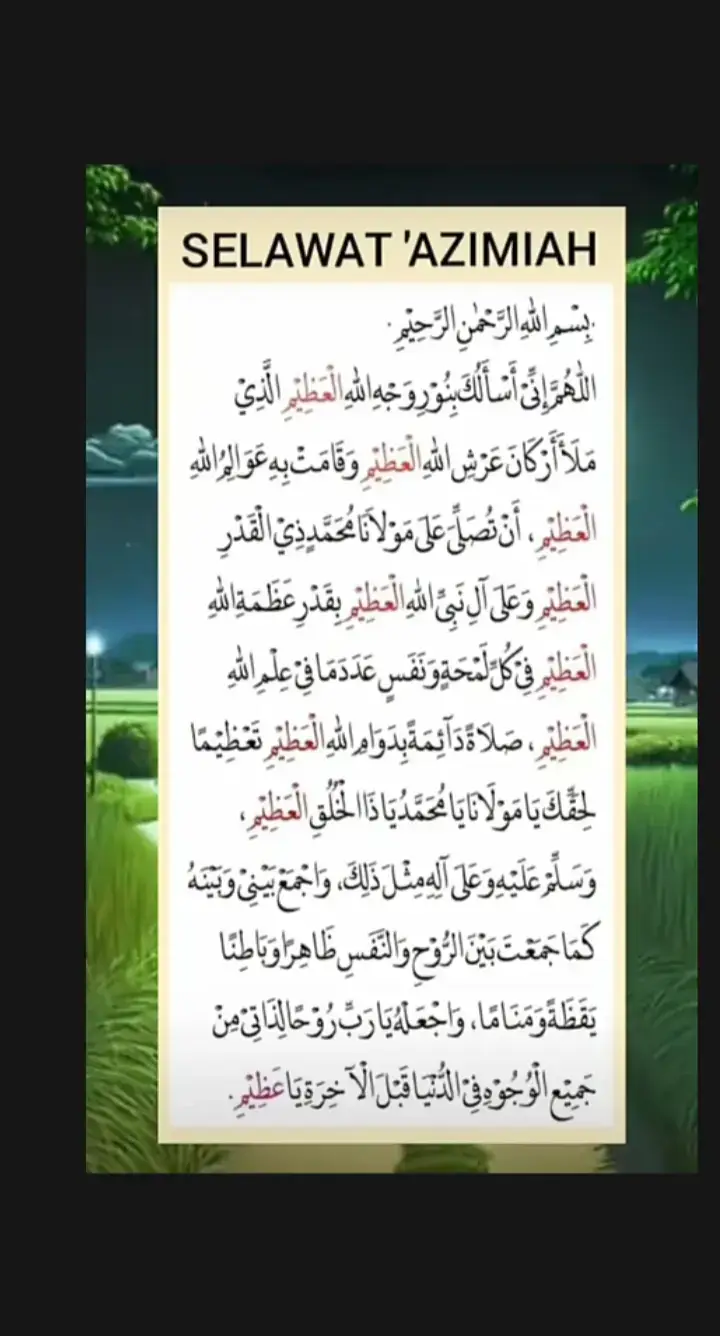 SELAWAT 'AZIMIAH
.بِسْمِ اللهِ الرَّحْمٰنِ الرَّحِيْمِ.
اللّٰهُمَّ إِنِّيْ أَسْأَلُكَ بِنُوْرِ وَجْهِ اللهِ الْعَظِيْمِ الَّذِيْ
مَلَأَ أَرْكَانَ عَرْشِ اللهِ الْعَظِيْمِ وَقَامَتْ بِهِ عَوَالِمُ اللهِ
الْعَظِيْمِ، أَنْ تُصَلِّيَ عَلَى مَوْلَانَا مُحَمَّدٍ ذِيْ الْقَدْرِ
الْعَظِيْمِ وَعَلَى آلِ نَبِيِّ اللهِ الْعَظِيْمِ بِقَدْرِ عَظَمَةِ اللهِ
الْعَظِيْمِ فِيْ كُلِّ لَمْحَةٍ وَنَفَسٍ عَدَدَ مَا فِيْ عِلْمِ اللهِ
الْعَظِيْمِ، صَلَاةً دَآئِمَةً بِدَوَامِ اللهِ الْعَظِيْمِ تَعْظِيْمًا
لِحَقِّكَ يَا مَوْلَانَا يَا مُحَمَّدُ يَا ذَا الْخُلُقِ الْعَظِيْمِ،
وَسَلِّمْ عَلَيْهِ وَعَلَى آلِهِ مِثْلَ ذَلِكَ، وَاجْمَعْ بَيْنِيْ وَبَيْنَهُ
كَمَا جَمَعْتَ بَيْنَ الرُّوْحِ وَالنَّفَسِ ظَاهِرًا وَبَاطِنًا
يَقَظَةً وَمَنَامًا، وَاجْعَلْهُ يَا رَبِّ رُوْحًا لِذَاتِيْ مِنْ
جَمِيْعِ الْوُجُوْهِ فِيْ الدُّنْيَا قَبْلَ الْآخِرَةِ يَا عَظِيْمِ.